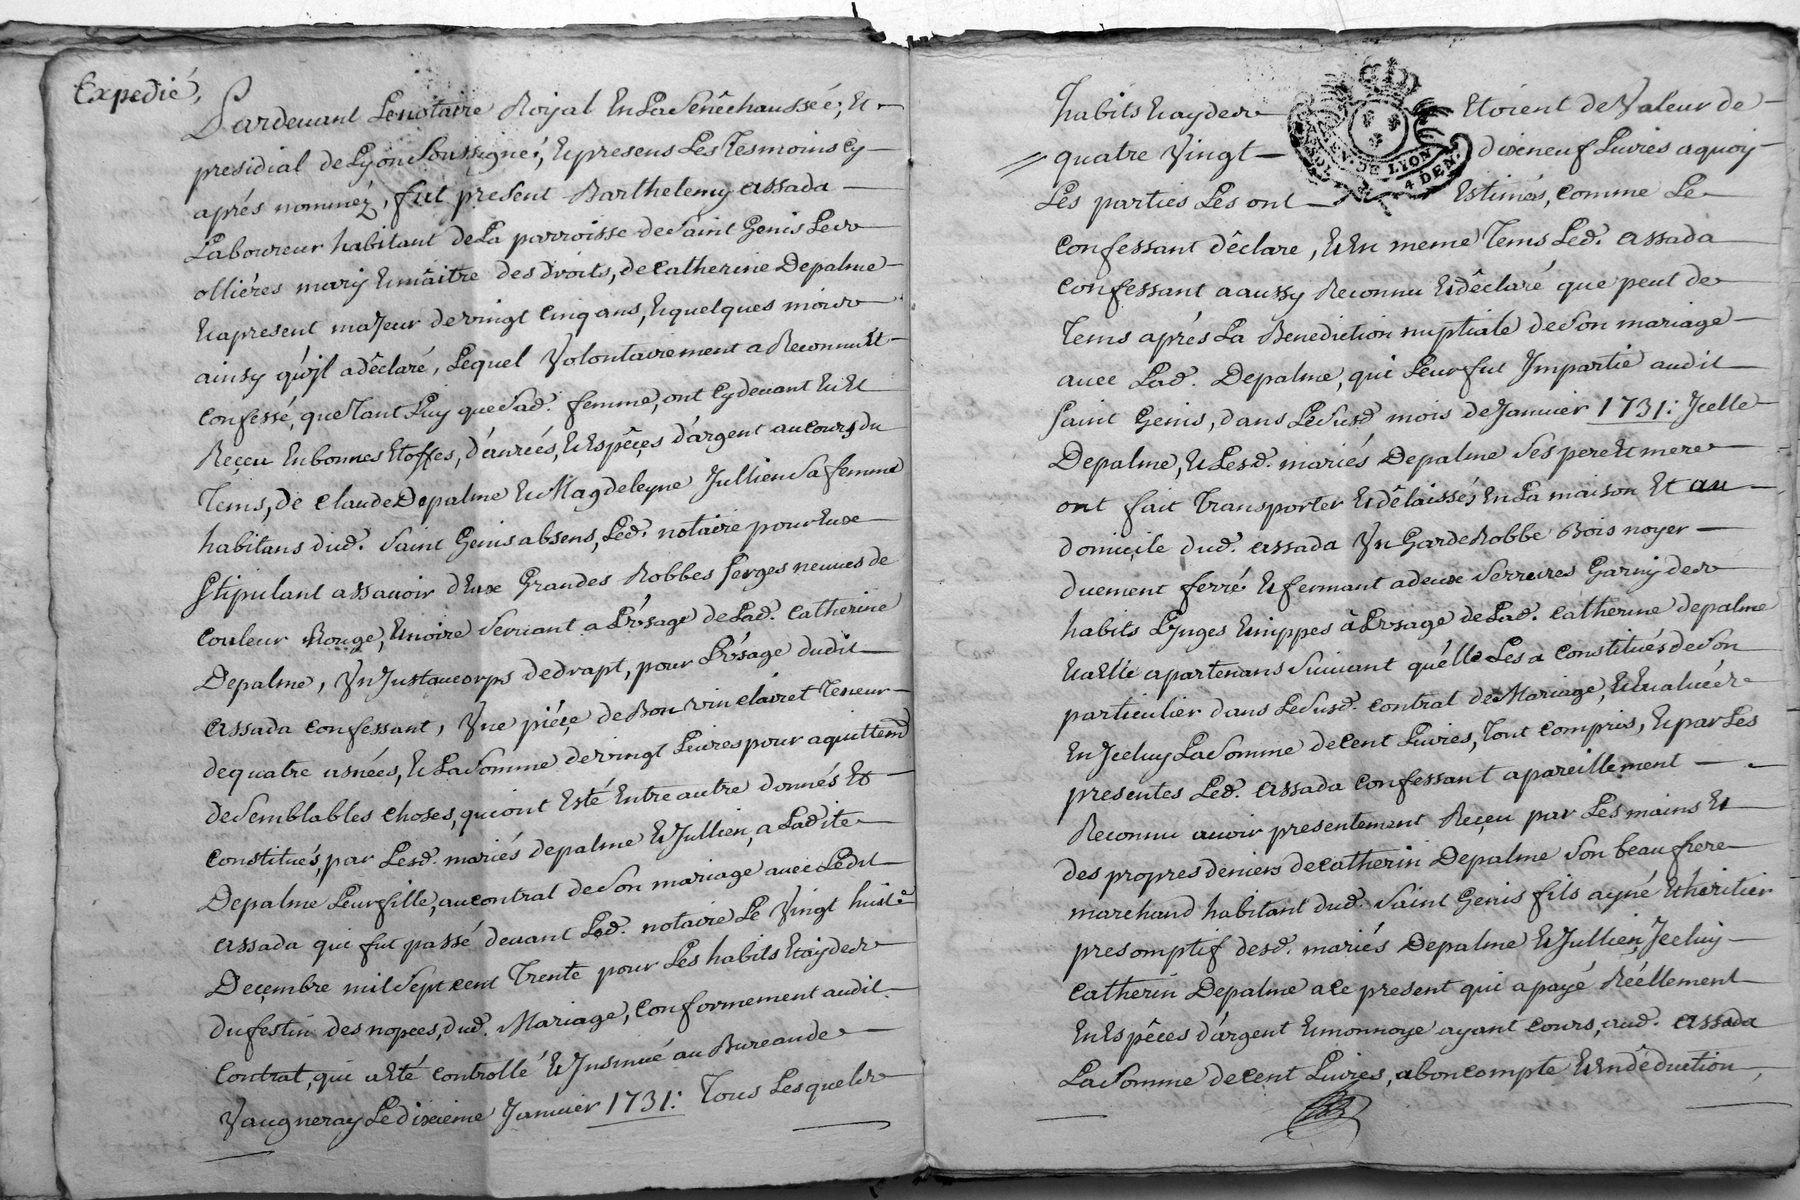 Expedié,
Pardevant Le notaire Roÿal En La Senêchaussée, Et
presidial de Lÿon Soussigné, Et presens Les Tesmoins cy
aprés nomméz, fut present Barthelemy assada
Laboureur habitant de La parroisse de Saint Genis Les
ollières mary Et mâitre des droits, de Catherine Depalme
Et apresent majeur de vingt cinq ans, Et quelques mois
ainsy qu'jl a dêclaré, Lequel Volontairement a Reconnu Et
Confessé, que Tant Luy que Sad. femme, ont cy devant Eu Et
Reçeu En bonnes Etoffes, d'anréés, Et Espêçes d'argent au cours du
Tems, de Claude Depalme Et Magdeleyne Jullien Sa femme
habitans dud. Saint Genis absens, Led. notaire pour Eux
Stipulant assavoir deux Grandes Robbes Serges neuves de
Couleur Rouge, Et noire Servant a L'usage de Lad. Catherine
Depalme, Vn Justaucorps de drapt, pour L'usage dudit
Assada Confessant, Vne piéçe de Bon vin clairet Teneur
de quatre asnées, Et La Somme de vingt Livres pour aquittemt
de Semblables choses, qui ont Esté Entre autre donnés Et
Constitués, par Lesd. mariés depalme Et Jullien, a Ladite
Depalme Leur fille, au contrat de Son mariage avec Ledit
Assada qui fut passé devant Led. notaire Le Vingt huite
Deçembre mil Sept cent Trente pour Les habits Et aydes
du festin des nopces, dud. Mariage, conformement audit
Contrat, qui a Eté Controllé Et Jnsinué au Bureau de
Vaugneray Le dixieme Janvier 1731: Tous Lesquels
habits Et aydes Etoient de Valeur de
quatre Vingt dixneuf Livres a quoy
Les parties Les ont Estimés, comme Le
Confessant dêclare, Et En meme Tems Led. Assada
Confessant a aussy Reconnu Et dêclaré que peut de
Tems aprés La Benediction nuptiale de Son mariage
avec Lad. Depalme, qui Leur fut Jmpartie audit
Saint Genis, dans Le Susd. mois de Janvier 1731: Jcelle
Depalme, Et Lesd. mariés Depalme Ses pere Et mere
ont fait Transporter Et dêlaissés En La maison Et au
domiçile dud. Assada Vn Garde Robbe Bois noyer
duement ferré Et fermant a deux Serrures Garny des
habits Lynges Et nippes à L'usage de Lad. Catherine depalme
Et a Elle apartenans Suivant qu'elle Les a Constitués de Son
particulier dans Le Susd. contrat de Mariage, Et Evalués
En Jceluy La Somme de Cent Livres, Tout compris, Et par Les
presentes Led. Assada Confessant apareillement
Reconnu avoir presentement Reçeu par Les mains Et
des propres deniers de Catherin Depalme Son beau frere
marchand habitant dud. Saint Genis fils ayné Et hêritier
presomptif desd. mariés Depalme Et Jullien, Jceluy
Catherin Depalme a ce present qui a payé Réellement
En Espêces d'argent Et monnoye ayant Cours, aud. Assada
La Somme de Cent Livres, a bon compte Et En dêduction,
GEN. DE LYON
4 DEN.